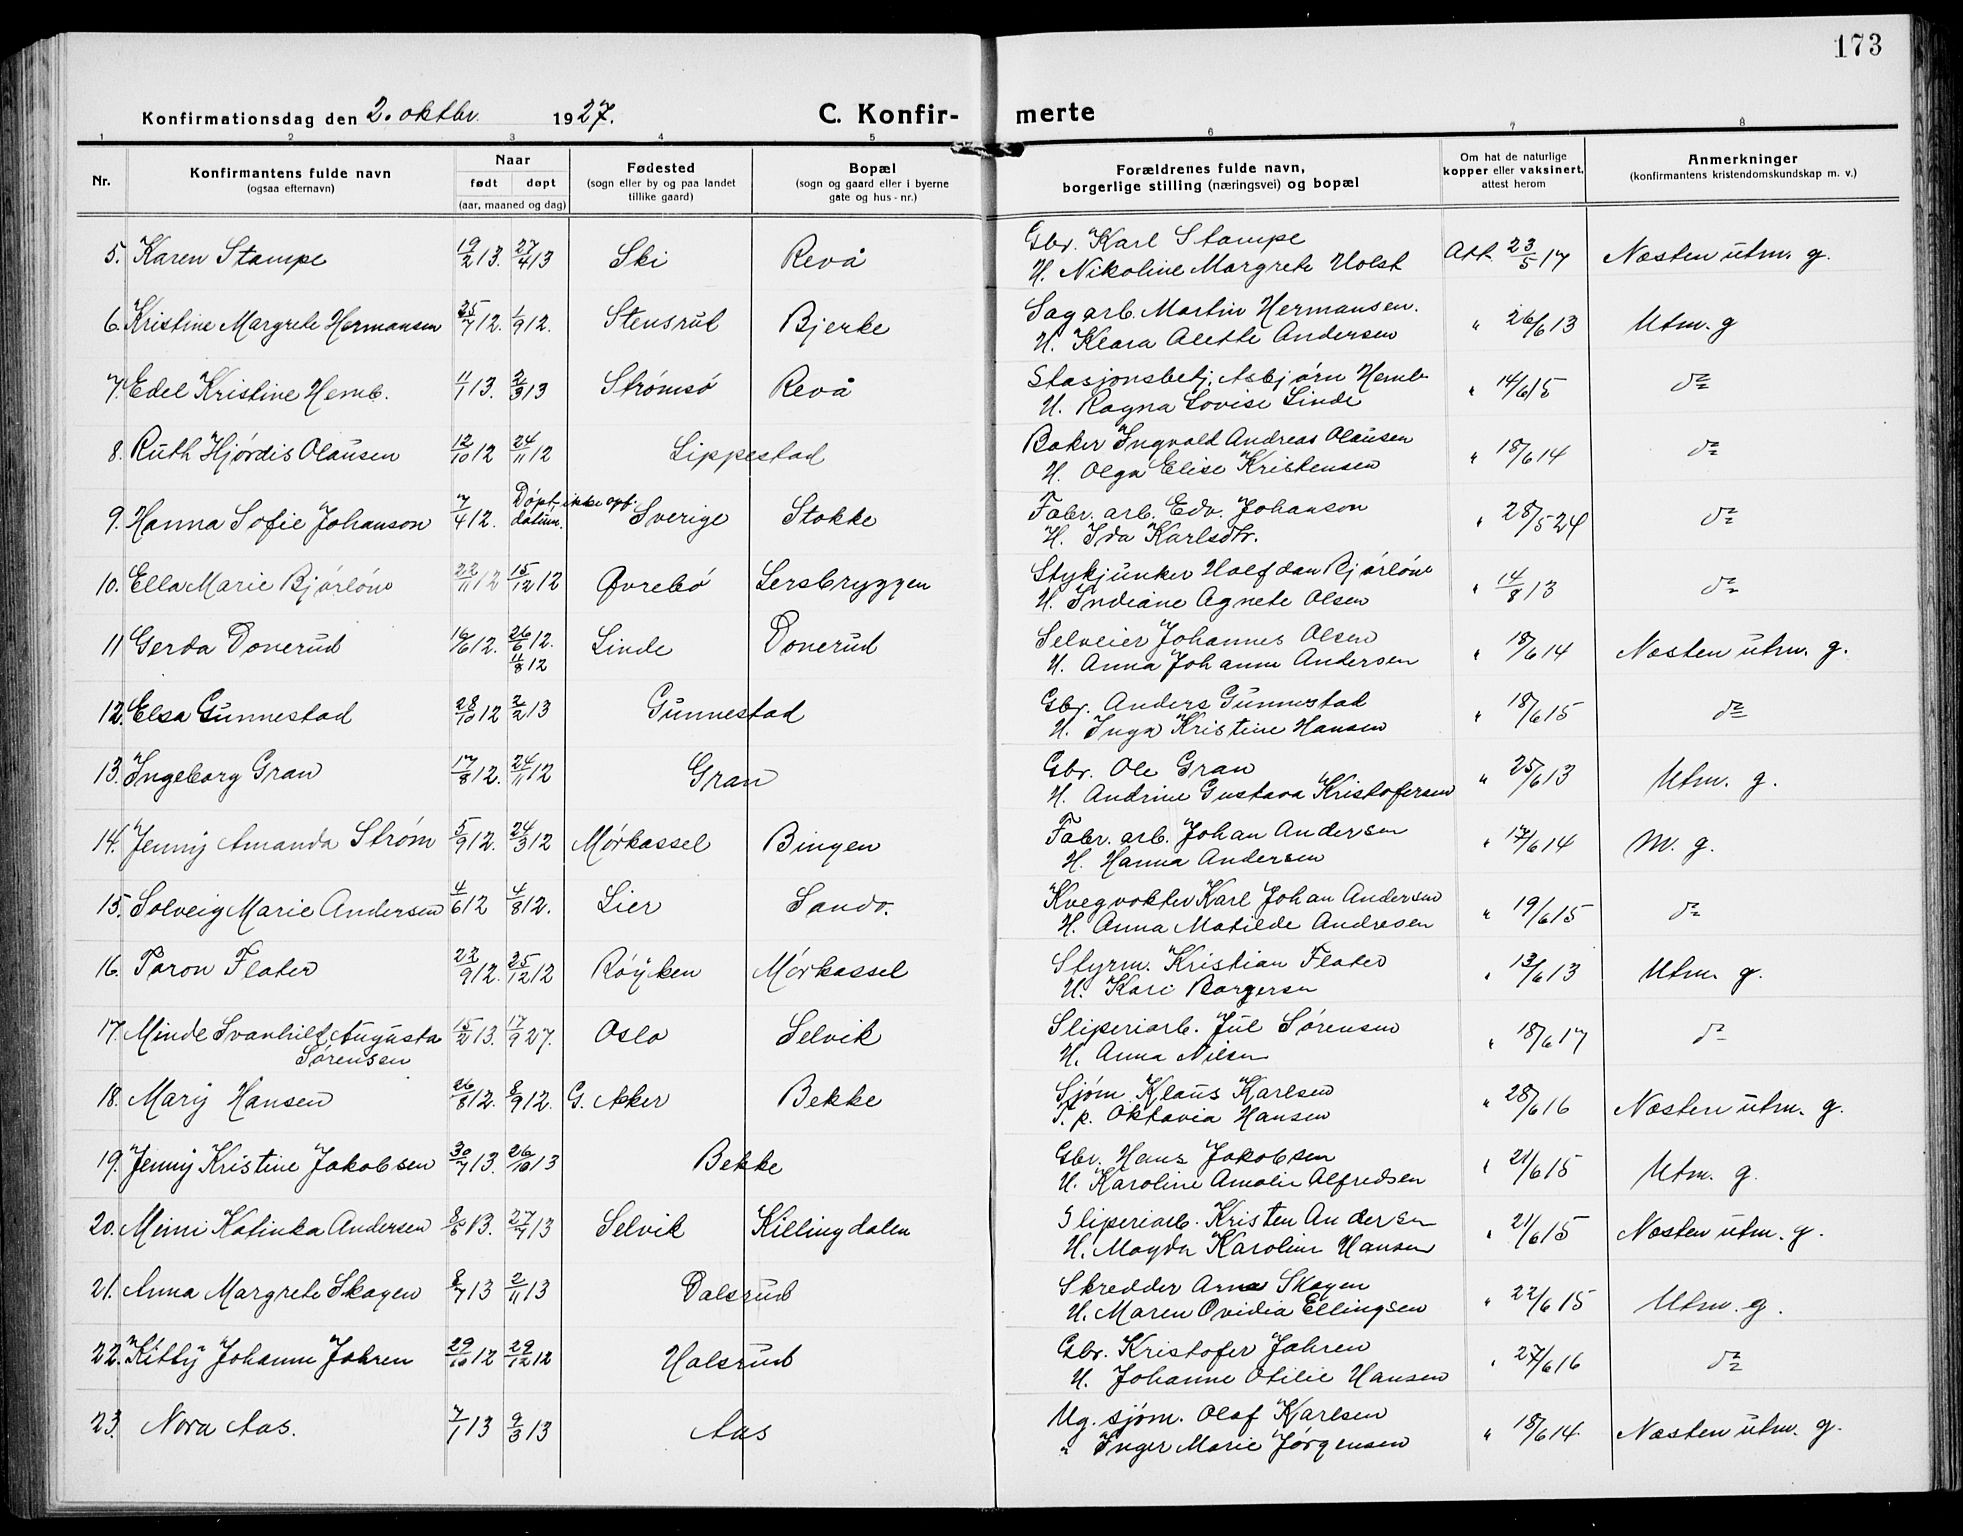 173
Konfirmationsdag den 2. oktbr. 1927. C. Konfir- merte
1 2 3 4 5 6 7 8
Nr. Konfirmantens fulde navn (ogsaa efternavn) Naar født døpt (aar, maaned og dag) Fødested (sogn eller by og paa landet tillike gaard) Bopæl (sogn og gaard eller i byerne gate og hus - nr.) Forældrenes fulde navn, borgerlige stilling (næringsvei) og bopæl Om hat de naturlige kopper eller vaksinert, attest herom Anmerkninger (konfirmantens kristendomskundskap m. v.)
5. Karen Stampe 19/2 13. 27/4 13 Ski Revå Gbr. Karl Stampe Att. 23/5 17 Næsten utm. g.
H. Nikoline Margrete Holst
6. Kristine Margrete Hermansen 25/7 12. 1/9 12. Stensrud Bjerke Sagarb. Martin Hermansen. " 26/6 13 Utm. g
H. Klara Alette Andersen
7. Edel Kristine Hemb. 11/1 13. 2/3 13 Strømsø Revå Stasjonsbetj. Asbjørn Hemb " 14/6 15 do
H. Ragna Lovise Linde
8. Ruth Hjørdis Olausen 12/10 12 24/11 12 Lippestad Baker Ingvald Andreas Olausen " 18/6 14 do
H. Olga Elise Kristensen
9. Hanna Sofie Johanson 7/4 12. Døpt ikke opf. datum. Sverige Stokke Fabr. arb. Edv. Johanson " 28/5 24 do
H. Ida Karlsdtr.
10. Ella Marie Bjørløw 22/11 12 15/12 12 Øvrebö Lersbryggen Stykjunker Halfdan Bjørløw " 14/8 13 do
H. Indiane Agnete Olsen
11 Gerda Donerud 16/6 12. 26/6 12. 11/8 12 Linde Donerud Selveier Johannes Olsen " 18/6 14 Næsten utm. g.
H. Anna Johanne Andersen
12. Elsa Gunnestad 28/10 12 2/2 13 Gunnestad Gbr. Anders Gunnestad " 18/6 15 do
H. Inga Kristine Hansen
13. Ingeborg Gran 17/8 12. 24/11 12 Gran Gbr. Ole Gran " 25/6 13 Utm. g.
H. Andrine Gustava Kristofersen
14. Jenny Amanda Strøm 5/9 12. 24/3 12 Mørkassel Bingen Fabr. arb. Johan Andersen " 17/6 14 M. g.
H. Hanna Andersen
15. Solveig Marie Andersen 4/6 12 4/8 12. Lier Sandv. Kvegvokter Karl Johan Andersen " 19/6 15 do
H. Anna Matilde Andresen
16. Toron Flater 22/9 12. 25/12 12 Røyken Mørkassel Styrm. Kristian Flater " 13/6 13 Utm. g.
H. Kari Borgersen
17. Minde Svanhild Augusta 15/2 13. 17/9 27. Oslo Selvik Sliperiarb. Jul Sørensen " 18/6 17 do
Sørensen H. Anna Nilsen
18. Mary Hansen 26/8 12. 8/9 12. G. Akker Bekke Sjøm Klaus Karlsen " 28/6 16 Næsten utm. g.
T. p. Oktavia Hansen
19. Jenny Kristine Jakobsen 30/7 13. 26/10 13 Bekke Gbr. Hans Jakobsen " 21/6 15 Utm. g.
H. Karoline Amalie Alfredsen
20. Mimi Katinka Andersen 8/5 13. 27/7 13 Selvik Killingdalen Sliperiarb. Kristen Andersen " 21/6 15 Næsten utm. g.
H. Magda Karoline Hansen
21. Anna Margrete Skogen 8/7 13 2/11 13 Dalsrud Skredder Arne Skogen " 22/6 15 Utm. g.
H. Maren Ovidia Ellingsen
22. Kitty Johanne Jahren 29/10 12 29/12 12 Halsrud Gbr. Kristofer Jahren " 27/6 16 do
H. Johanne Otilie Hansen
23. Nora Aas. 7/1 13 9/3 13 Aas Ug. sjøm. Olaf Karlsen " 18/6 14. Næsten utm. g.
" Inger Marie Jørgensen